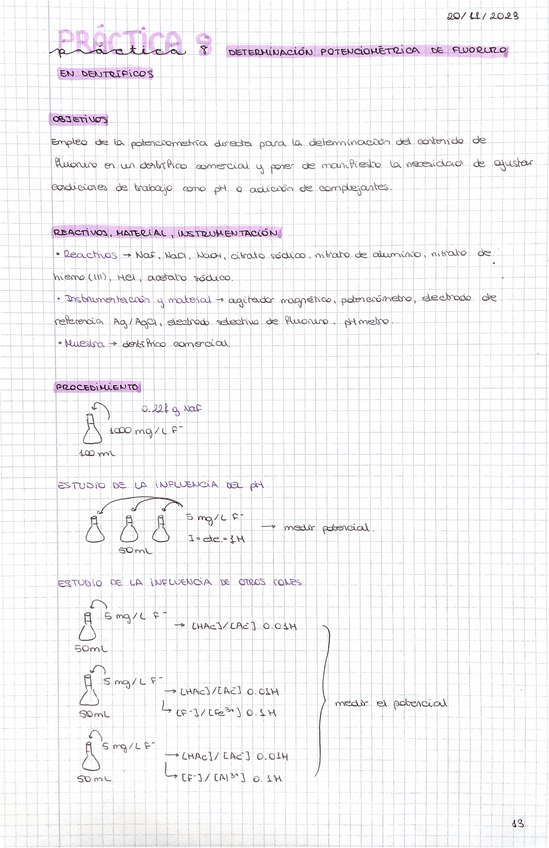 20/11/2023
PRÁCTICA 8
práctica 8 DETERMINACIÓN POTENCIOMÉTRICA DE FLUORURO
EN DENTRÍFICOS
OBJETIVOS
Empleo de la potenciometría directa para la determinación del contenido de
fluoruro en un dentrífico comercial y poner de manifiesto la necesidad de ajustar
condiciones de trabajo como pH o adición de complejantes.
REACTIVOS, MATERIAL, INSTRUMENTACIÓN
• Reactivos → NaF, NaCl, NaOH, citrato sódico, nitrato de aluminio, nitrato de
hierro (III), HCl, acetato sódico.
• Instrumentación y material → agitador magnético, potenciómetro, electrodo de
referencia Ag/AgCl, electrodo selectivo de fluoruro, pHmetro.
• Muestra → dentrífico comercial
PROCEDIMIENTO
0.221 g NaF
1000 mg/L F⁻
100 mL
ESTUDIO DE LA INFLUENCIA DEL pH
5 mg/L F⁻
I = cte. = 1M → medir potencial.
50mL
ESTUDIO DE LA INFLUENCIA DE OTROS IONES
5 mg/L F⁻
→ [HAc]/[Ac⁻] 0.01M
50mL
5 mg/L F⁻
→ [HAc]/[Ac⁻] 0.01M
medir el potencial
50mL
↳ [F⁻]/[Fe³⁺] 0.1M
5 mg/L F⁻
→ [HAc]/[Ac⁻] 0.01M
50mL
↳ [F⁻]/[Al³⁺] 0.1M
13